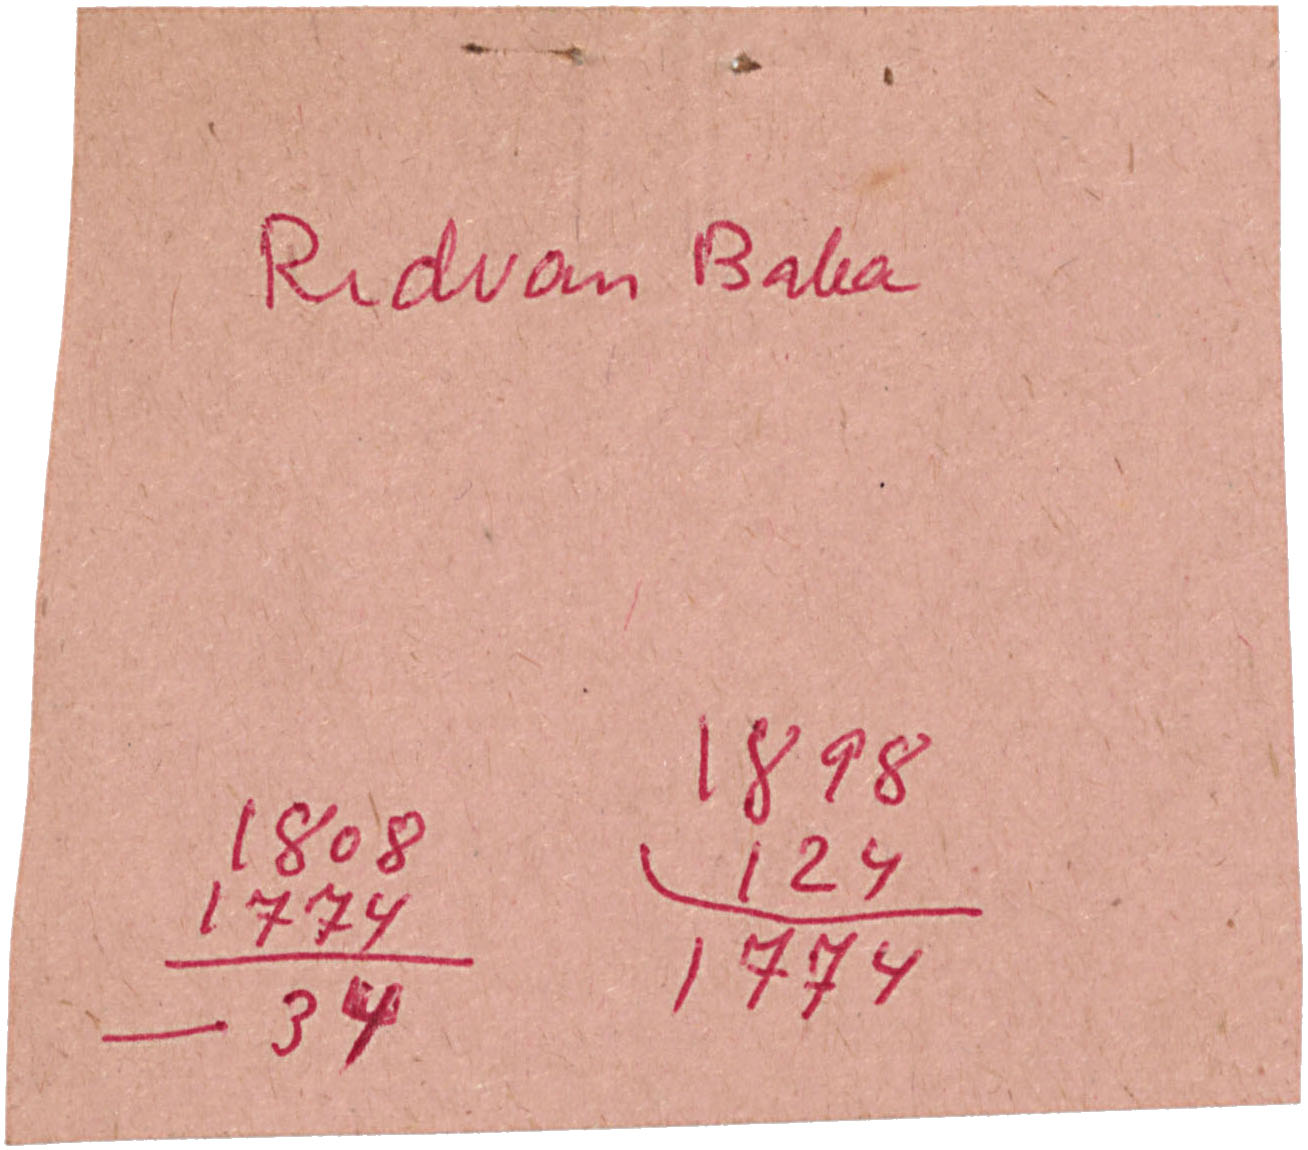 Rıdvan Baba
1898
124
1774
1808
1774
— 34